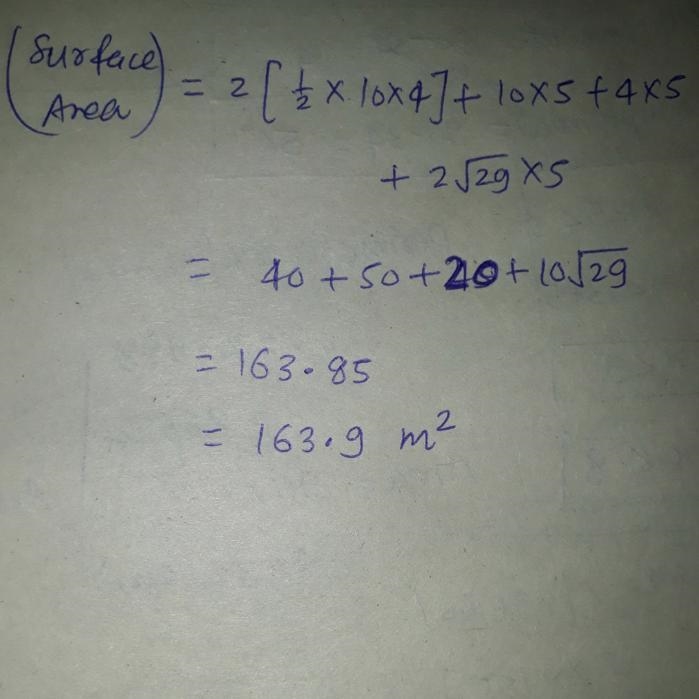 (Surface Area) = 2 [ 1/2 × 10×4 ] + 10×5 + 4×5
+ 2√29 ×5
= 40 + 50 + 20 + 10√29
= 163.85
= 163.9 m²